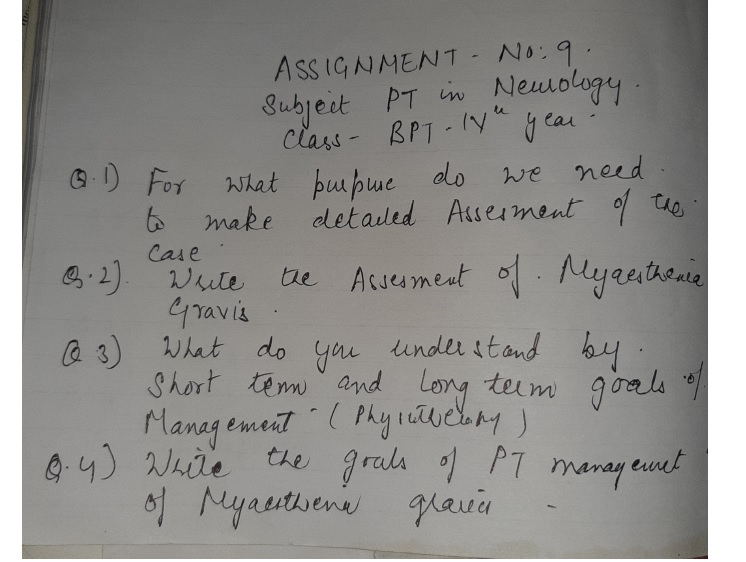 ASSIGNMENT - No: 9.
Subject PT in Neurology.
Class - BPT - IVth year.
Q.1) For what purpose do we need.
to make detailed Assesment of the.
case.
Q.2). Write the Assesment of. Myaesthenia
Gravis.
Q 3) What do you understand by.
Short term and Long term goals of.
Management - (Physiotherapy)
Q.4) Write the goals of PT management
of Myaesthenia gravis -